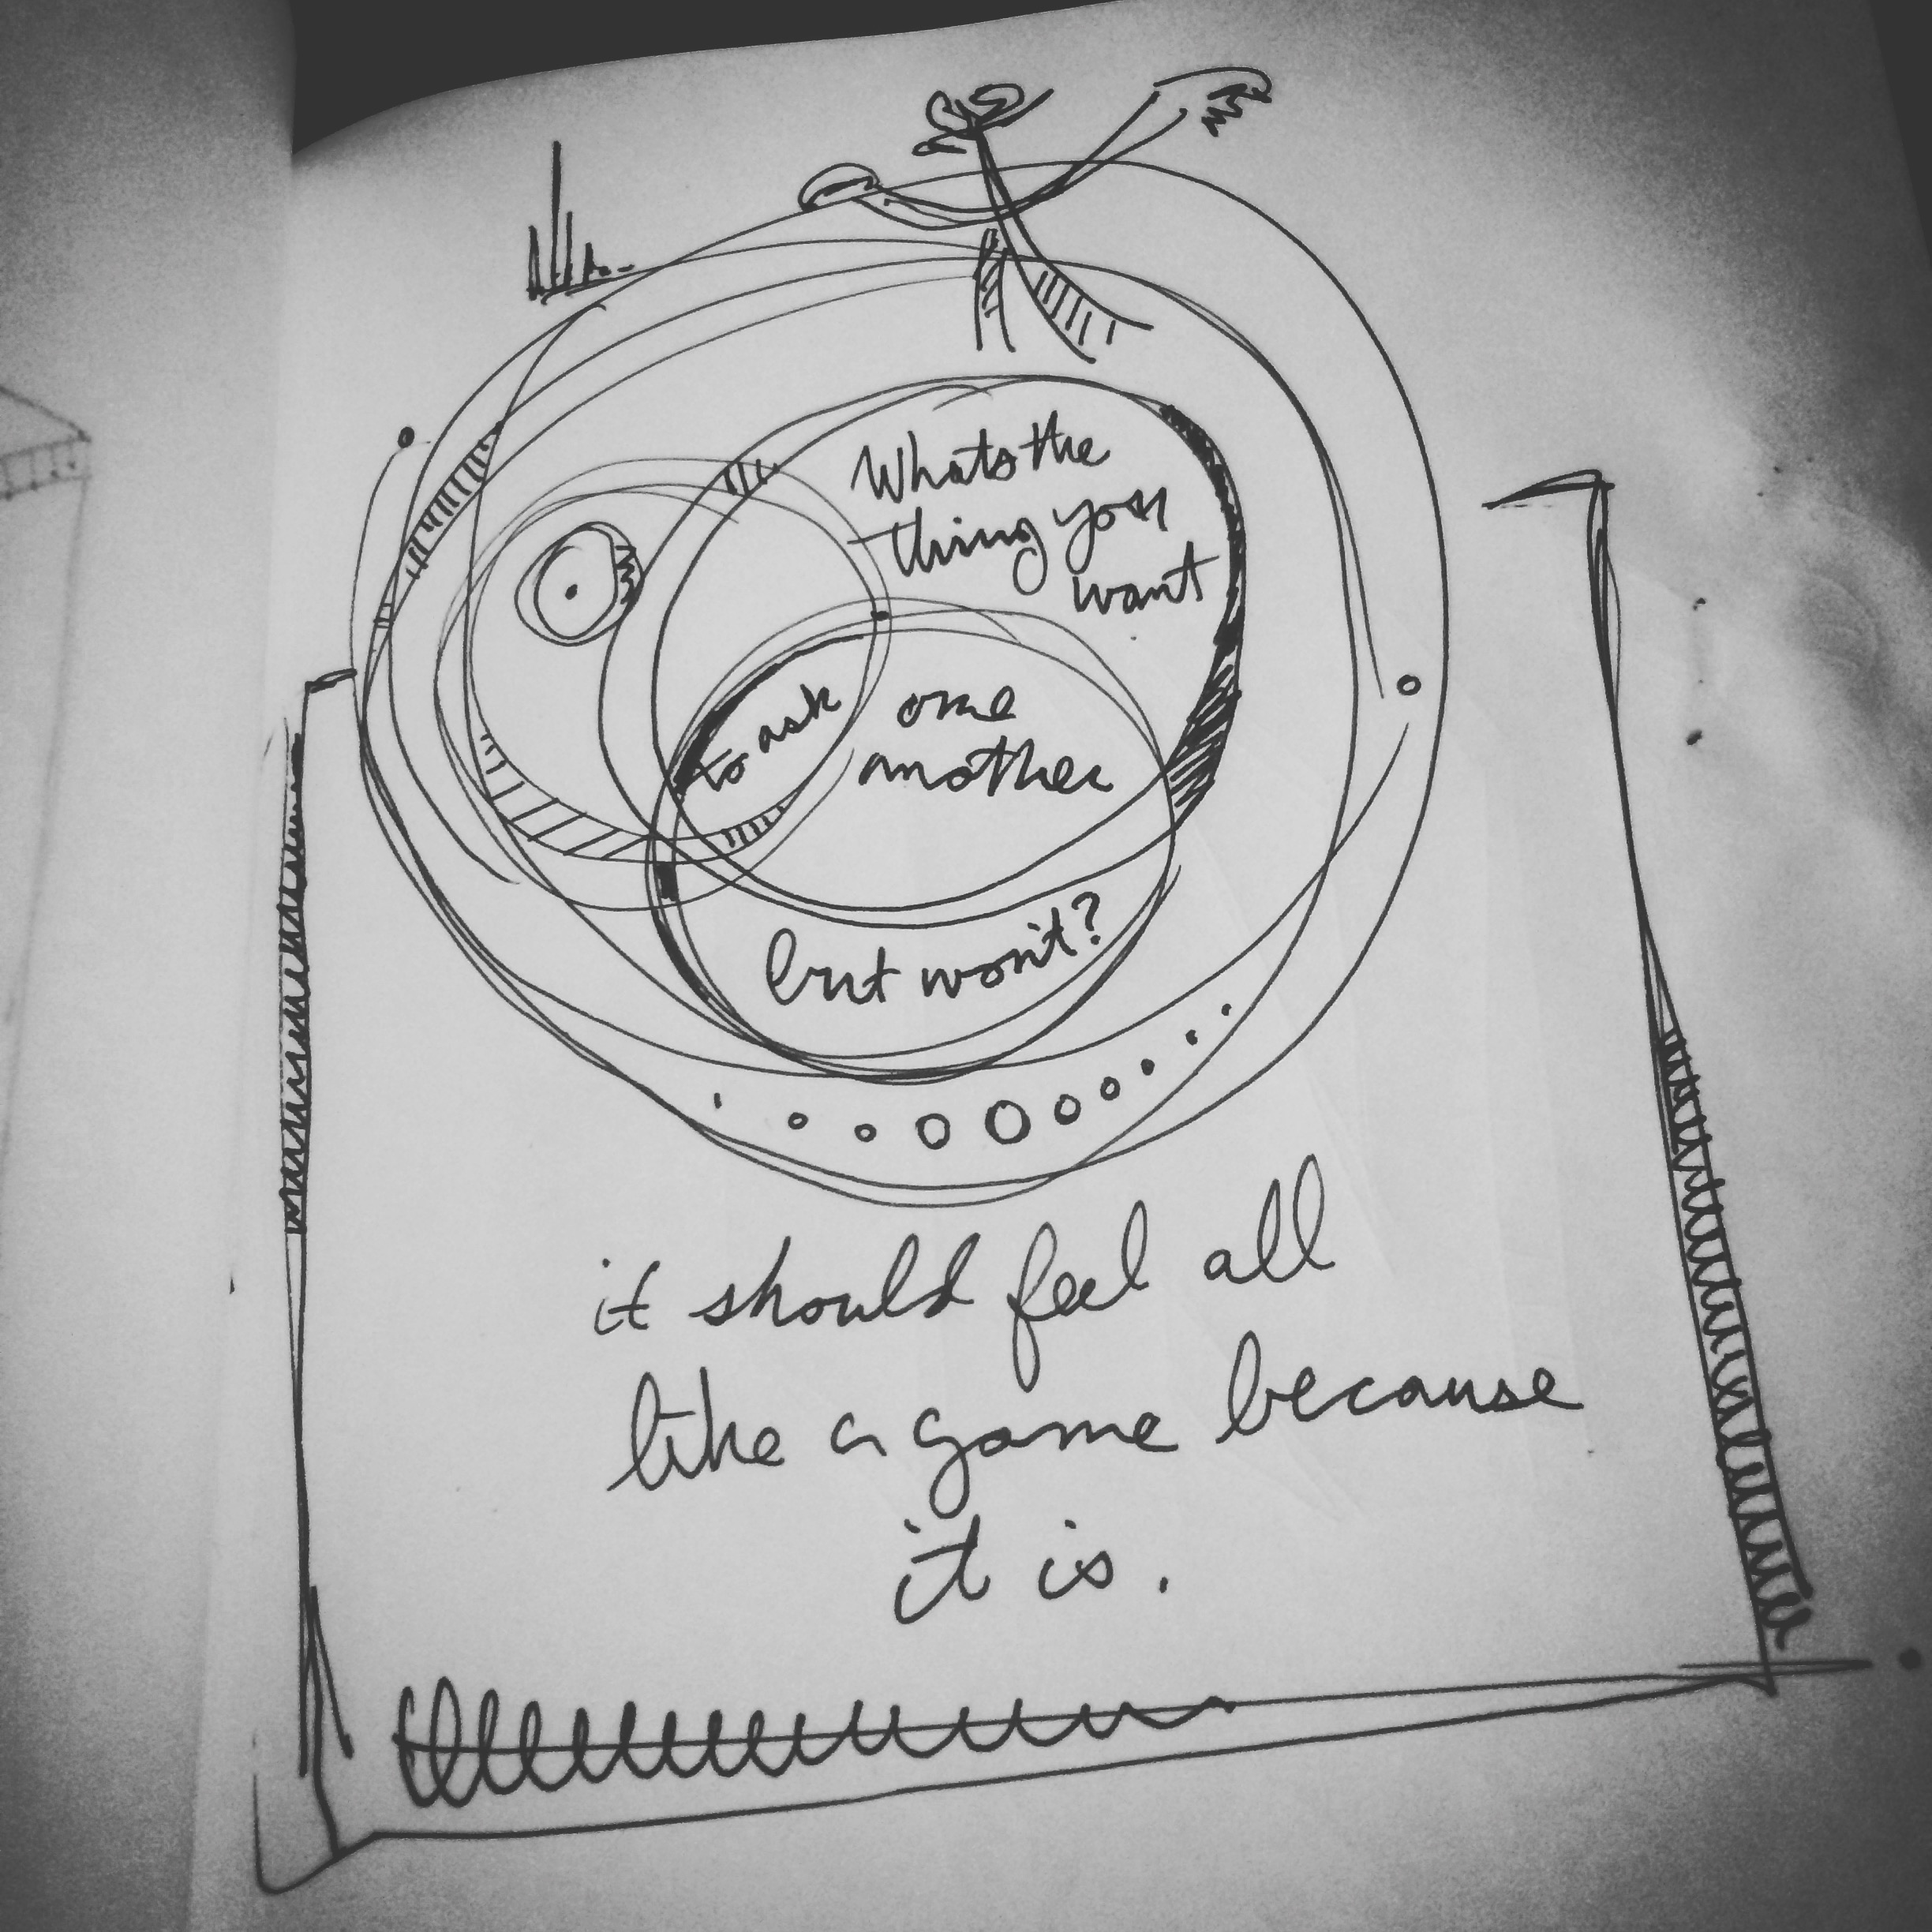 Whats the
thing you
want
to ask
one
another
but won't?
it should feel all
like a game because
it is.